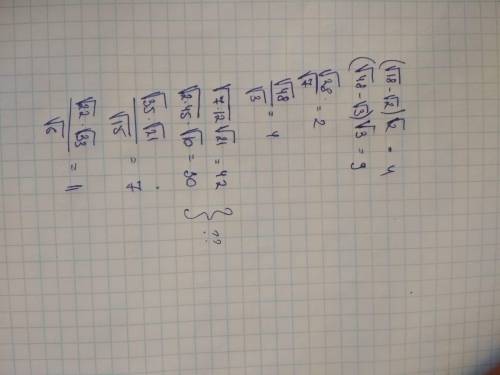 (√18 - √2)√2 = 4
(√48 - √3)√3 = 9
√28 / √7 = 2
√48 / √3 = 4
√7·12 √21 = 42
√2·45 · √10 = 30 } ??
√35 · √21 / √15 = 7
√22 · √33 / √6 = 11